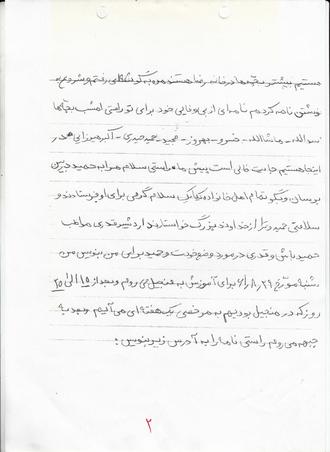 هستیم بیشتر بچه‌ها در خانه رضا هستند من به گوشه‌ای رفتم و شروع به
نوشتن نامه کردم نامه‌ای از بی‌وفایی خود برای تو راستی امشب بچه‌ها
نصرالله - ماشاالله - خسرو - بهروز - مجید - حمید حیدری - اکبر میرزایی در
اینجا هستیم جایت خالی است پیش ما راستی سلام مرا به حمید جیرین
برسان و بگو تمام اهل خانواده تک‌تک سلام گرمی برای او فرستادند و
سلامتی حمید را از خداوند بزرگ خواستارند اردشیر قدری مواظب
حمید باش و قدری در مورد وضع خودت و حمید برای من بنویس من
شنبه مورخ ۶۱/۸/۲۹ برای آموزش به منجیل می روم و بعد از ۱۵ الی ۲۵
روز که در منجیل بودیم به مرخصی یک هفته‌ای می‌آئیم و بعد به
جبهه می‌روم راستی نامه را به آدرس زیر بنویس :
۲